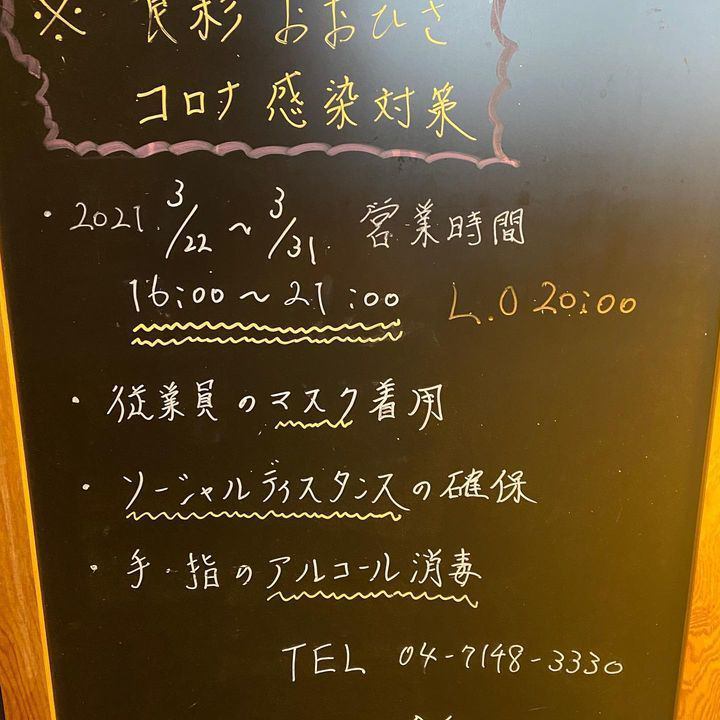 ※ 食彩 おおひさ
コロナ 感染対策
・2021. 3/22 〜 3/31 営業時間
16:00 〜 21:00 L.O 20:00
・従業員のマスク着用
・ソーシャルディスタンスの確保
・手・指のアルコール消毒
TEL 04-7148-3330